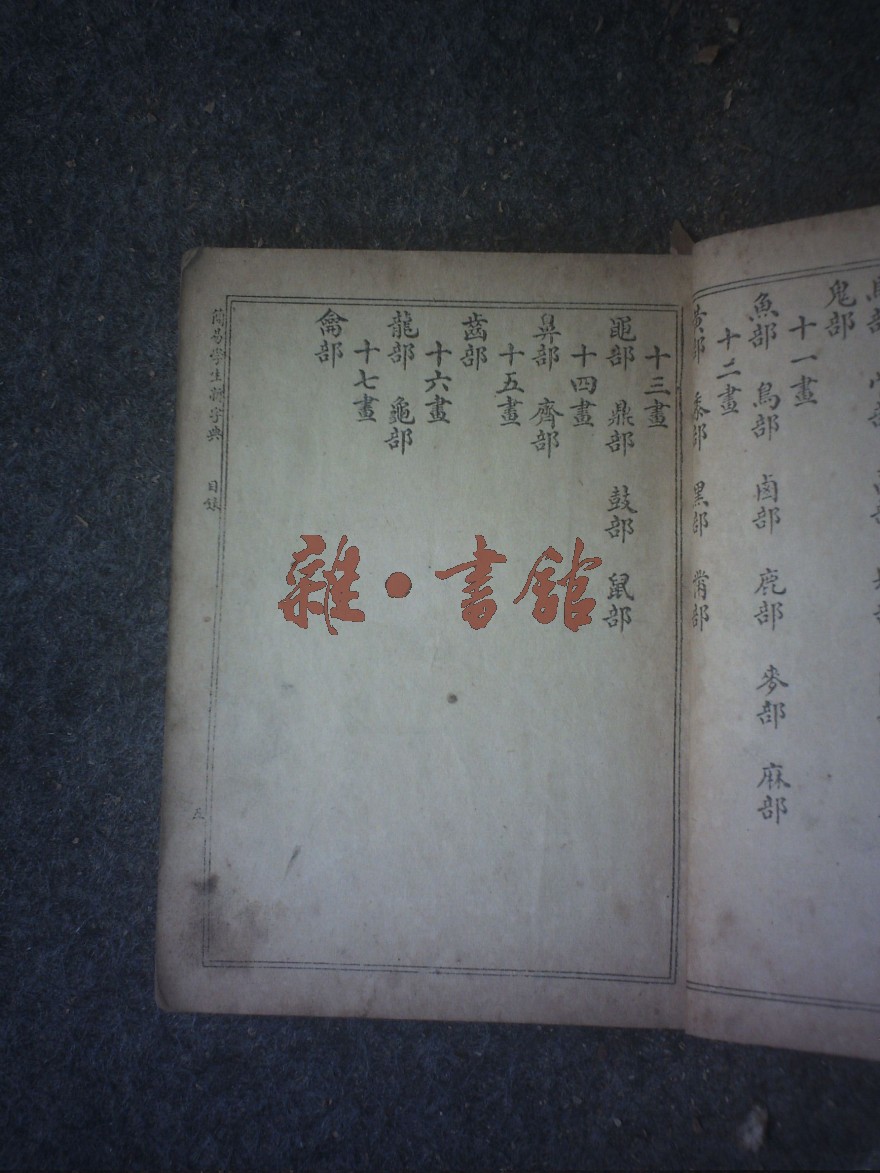 鬼部
十一畫
魚部 鳥部 鹵部 鹿部 麥部 麻部
十二畫
黍部 黑部 黹部
十三畫
黽部 鼎部 鼓部 鼠部
十四畫
鼻部 齊部
十五畫
齒部
十六畫
龍部 龜部
十七畫
龠部
簡易學生新字典 目錄
五
雜·書館